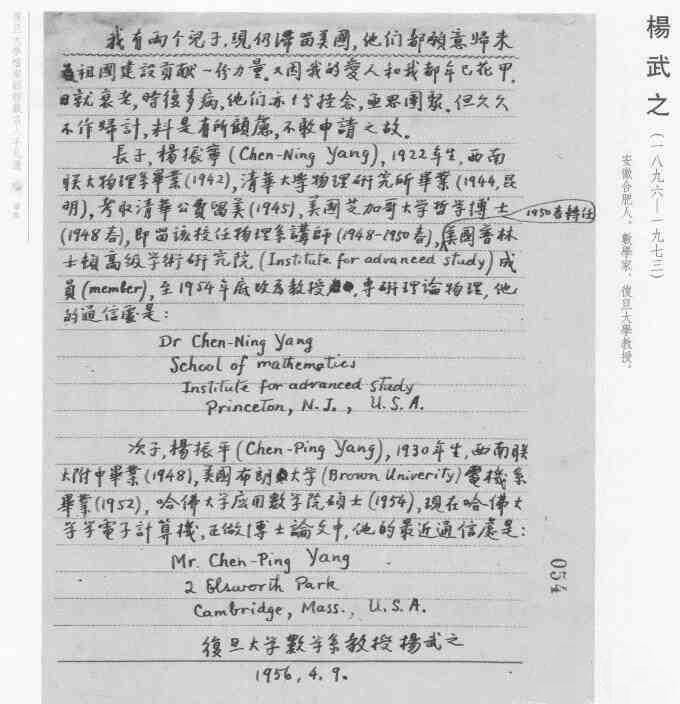 我有兩个兒子,現仍滯畄美國,他们都願意歸来
為祖國建設貢献一份力量,又因我的愛人和我都年已花甲,
日就衰老,時復多病,他们亦十分挂念,亟思團聚.但久久
不作歸計,料是有所顧慮,不敢申請之故.
長子,楊振寧(Chen-Ning Yang),1922年生,西南
联大物理系畢業(1942),清華大學物理研究所畢業(1944,昆
明),考取清華公費畄美(1945),美國芝加哥大学哲学博士
(1948春),即畄該校任物理系講師(1948-1950春),美國普林
1950春轉任
士頓高級学術研究院(Institute for advanced study)成
員(member),至1954年底改為教授,專研理論物理,他
的通信處是:
Dr Chen-Ning Yang
School of mathematics
Institute for advanced study
Princeton, N.J., U.S.A.
次子,楊振平(Chen-Ping Yang),1930年生,西南联
大附中畢業(1948),美國布朗大学(Brown Univerity)電機系
畢業(1952),哈佛大学应用數学院碩士(1954),現在哈佛大
学学電子計算機,正做博士論文中,他的最近通信處是:
Mr. Chen-Ping Yang
2 Elsworth Park
Cambridge, Mass., U.S.A.
復旦大学數学系教授楊武之
1956,4.9.
054
楊武之(一八九六—一九七三)
安徽合肥人。數學家,復旦大學教授。